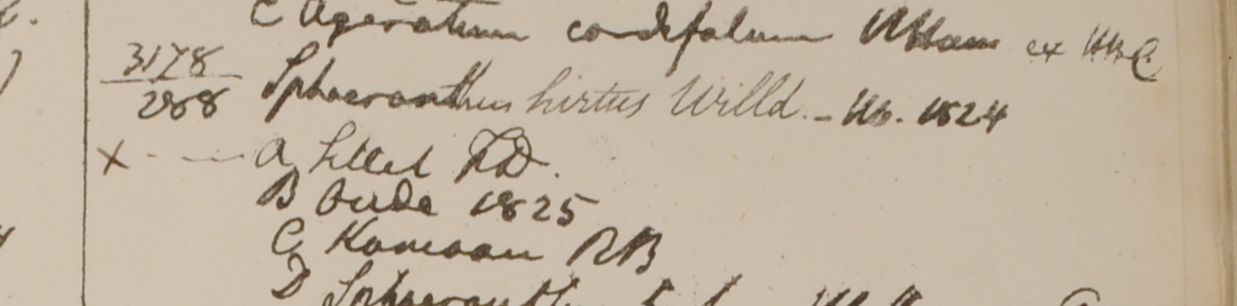 C Ageratum cordifolium Wblans ex HBC
3178
288 Sphaeranthus hirtus Willd. - Hb. 1824
X - - a Sillet FD.
B Oude 1825
C Kamaon RB
D Sphaeranth